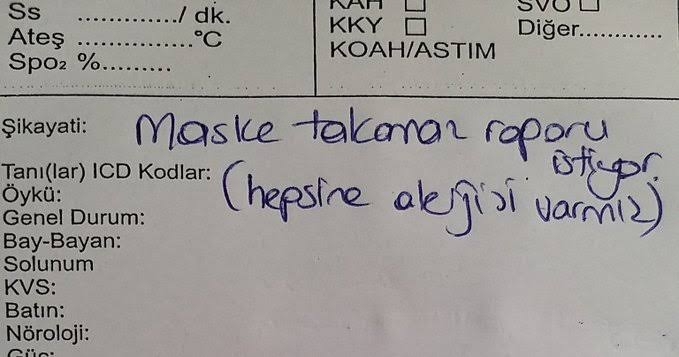 Ss ............./ dk.
Ateş ................°C
Spo₂ %.........
KAH □ SVO □
KKY □ Diğer............
KOAH/ASTIM
Şikayati: Maske takamaz raporu istiyor.
Tanı(lar) ICD Kodlar: (hepsine alerjisi varmış)
Öykü:
Genel Durum:
Bay-Bayan:
Solunum
KVS:
Batın:
Nöroloji:
Güç: